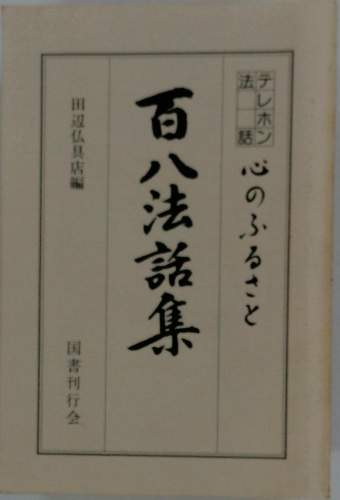 テレホン
法話
心のふるさと
百八法話集
田辺仏具店編
国書刊行会